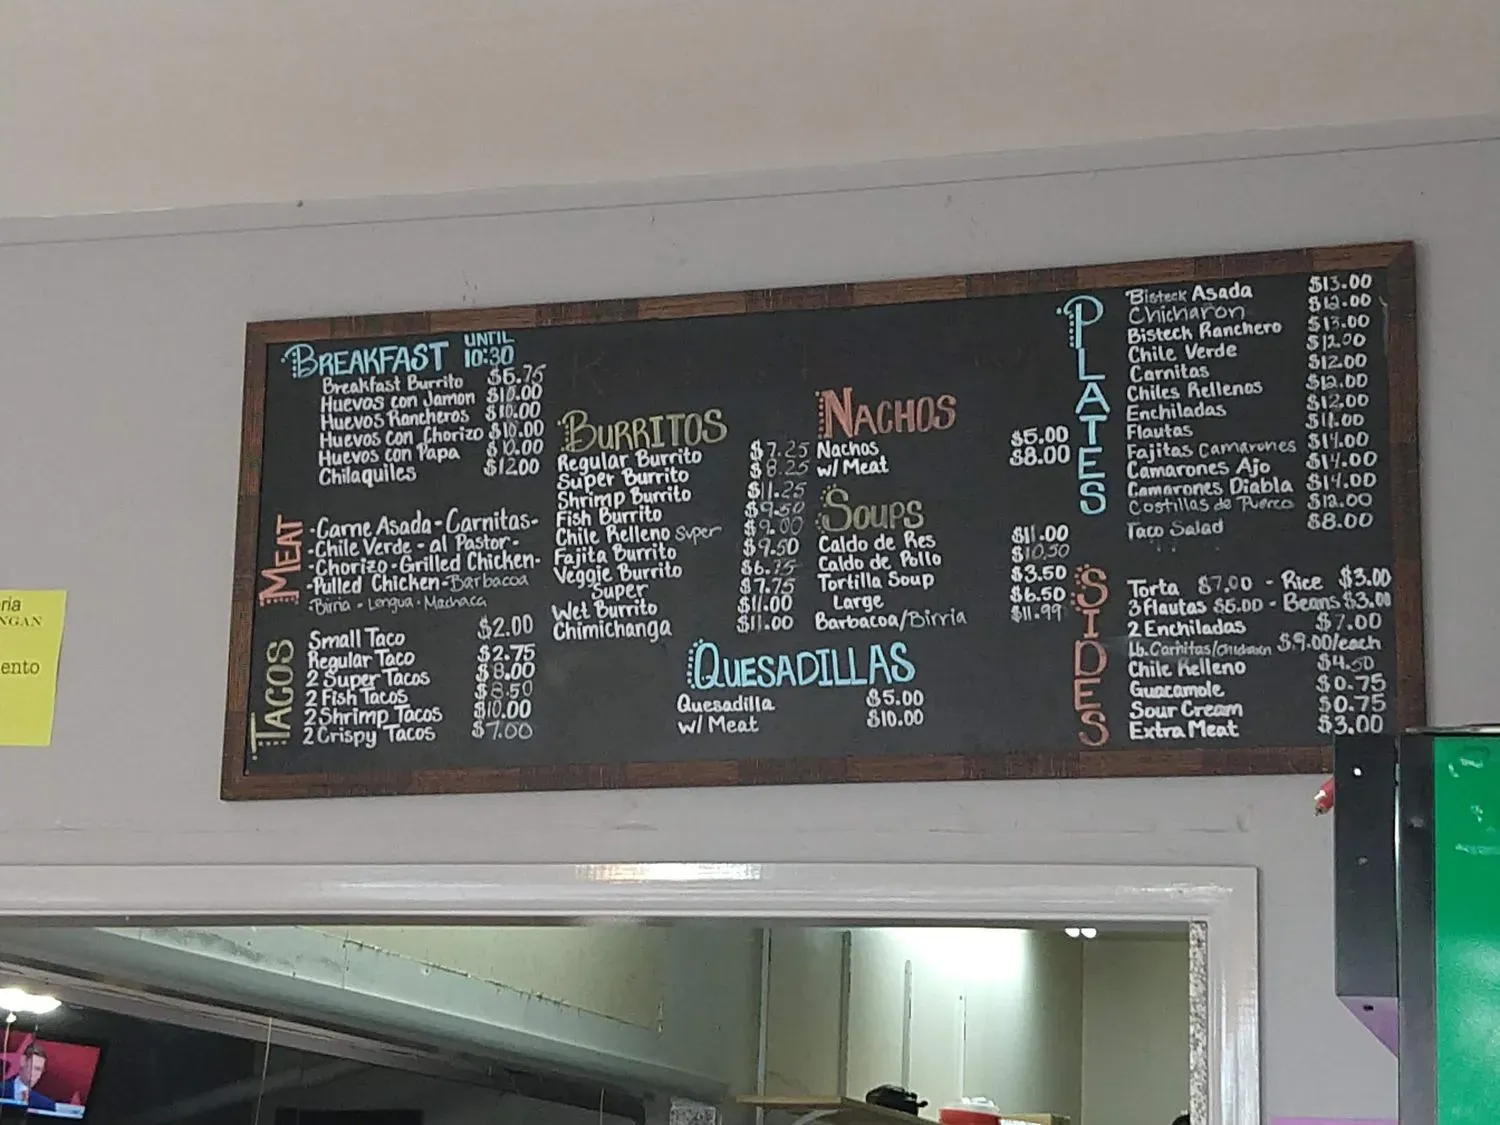 BREAKFAST UNTIL 10:30
Breakfast Burrito $6.75
Huevos con Jamon $10.00
Huevos Rancheros $10.00
Huevos con Chorizo $10.00
Huevos con Papa $10.00
Chilaquiles $12.00
MEAT
-Carne Asada-Carnitas-
-Chile Verde - al Pastor-
-Chorizo-Grilled Chicken-
-Pulled Chicken-Barbacoa
-Birria - Lengua - Machaca
TACOS
Small Taco $2.00
Regular Taco $2.75
2 Super Tacos $8.00
2 Fish Tacos $8.50
2 Shrimp Tacos $10.00
2 Crispy Tacos $7.00
BURRITOS
Regular Burrito $7.25
Super Burrito $8.25
Shrimp Burrito $11.25
Fish Burrito $9.50
Chile Relleno Super $9.00
Fajita Burrito $9.50
Veggie Burrito $6.75
Super $7.75
Wet Burrito $11.00
Chimichanga $11.00
NACHOS
Nachos $5.00
w/ Meat $8.00
SOUPS
Caldo de Res $11.00
Caldo de Pollo $10.50
Tortilla Soup $3.50
Large $6.50
Barbacoa/Birria $11.99
QUESADILLAS
Quesadilla $5.00
w/ Meat $10.00
PLATES
Bisteck Asada $13.00
Chicharon $12.00
Bisteck Ranchero $13.00
Chile Verde $12.00
Carnitas $12.00
Chiles Rellenos $12.00
Enchiladas $12.00
Flautas $11.00
Fajitas Camarones $14.00
Camarones Ajo $14.00
Camarones Diabla $14.00
Costillas de Puerco $12.00
Taco Salad $8.00
SIDES
Torta $7.00 - Rice $3.00
3 Flautas $5.00 - Beans $3.00
2 Enchiladas $7.00
Lb. Carnitas/Chicharon $9.00/each
Chile Relleno $4.50
Guacamole $0.75
Sour Cream $0.75
Extra Meat $3.00
ria
NGAN
ento